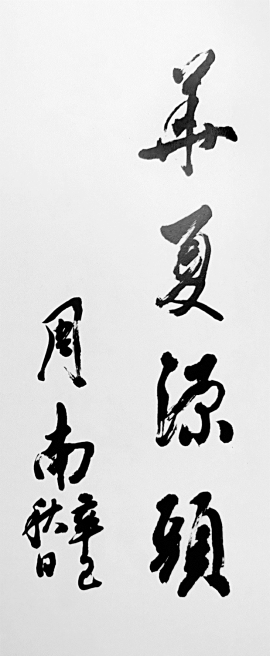 華夏源頭
周南
辛巳
秋日